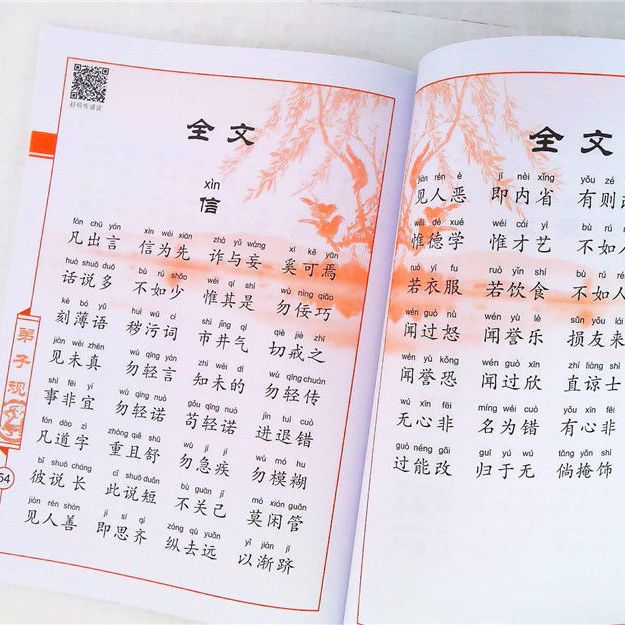 扫码听诵读
全文
xìn
信
fán chū yán xìn wéi xiān zhà yǔ wàng xī kě yān
凡出言 信为先 诈与妄 奚可焉
huà shuō duō bù rú shǎo wéi qí shì wù nìng qiǎo
话说多 不如少 惟其是 勿佞巧
kè bó yǔ huì wū cí shì jǐng qì qiè jiè zhī
刻薄语 秽污词 市井气 切戒之
jiàn wèi zhēn wù qīng yán zhī wèi dí wù qīng chuán
见未真 勿轻言 知未的 勿轻传
shì fēi yí wù qīng nuò gǒu qīng nuò jìn tuì cuò
事非宜 勿轻诺 苟轻诺 进退错
fán dào zì zhòng qiě shū wù jí jí wù mó hu
凡道字 重且舒 勿急疾 勿模糊
bǐ shuō cháng cǐ shuō duǎn bù guān jǐ mò xián guǎn
彼说长 此说短 不关己 莫闲管
jiàn rén shàn jí sī qí zòng qù yuǎn yǐ jiàn jī
见人善 即思齐 纵去远 以渐跻
弟子规
54
全文
jiàn rén è jí nèi xǐng yǒu zé
见人恶 即内省 有则
wéi dé xué wéi cái yì bù rú rén
惟德学 惟才艺 不如人
ruò yī fu ruò yǐn shí bù rú rén
若衣服 若饮食 不如人
wén guò nù wén yù lè sǔn yǒu lái
闻过怒 闻誉乐 损友来
wén yù kǒng wén guò xīn zhí liàng shì
闻誉恐 闻过欣 直谅士
wú xīn fēi míng wéi cuò yǒu xīn fēi
无心非 名为错 有心非
guò néng gǎi guī yú wú tǎng yǎn shì
过能改 归于无 倘掩饰